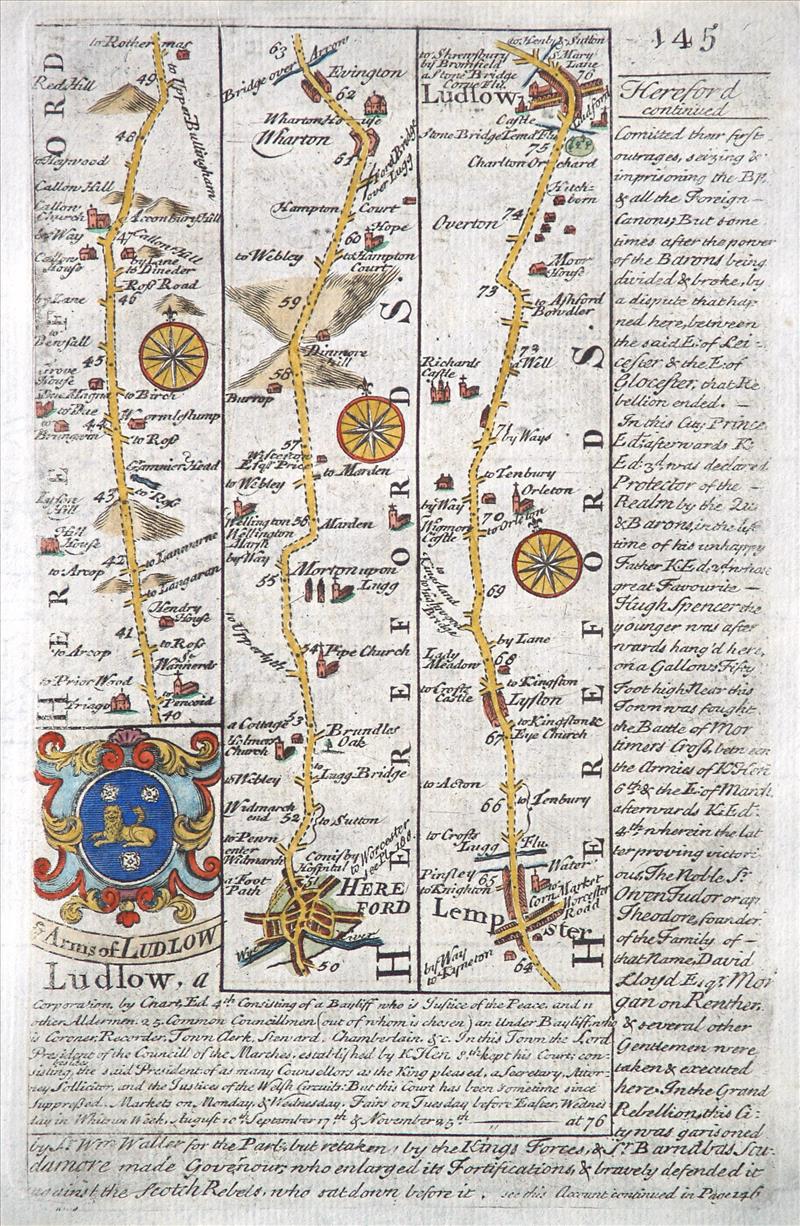 145
to Rothermas
49
to Upper Bullingham
Red Hill
48
Haywood
Callow Hill
Callow Church
Aconbury Hill
by Way
47
Callow Hill
Callow House
by Lane
to Dineder
Ross Road
by Lane
46
to Bewsall
45
Grove House
Dew Magna
to Birch
to Due
Wormlshump
44
to Ross
Gamnier Head
43
to Ross
Lyson Hill
Hill House
42
to Lanwarne
to Arcop
to Langaran
Hendry House
41
to Arcop
to Ross
Wannerds
to Prior Wood
to Pencoid
Triago
40
HEREFORD
63
Bridge over Arrow
Evington
62
Wharton House
Wharton
61
Ford Bridge over Lugg
Hampton Court
Hope
60
to Webley
to Hampton Court
59
Dinmore hill
58
Burrop
57
Wistestone Esqr. Price
to Marden
to Webley
Wellington
56
Marden
Wellington Marsh
by Way
Morton upon Lugg
55
to Upper Lyth
54
Pipe Church
a Cottage
53
Brundles Oak
Holmer Church
to Webley
to Lugg Bridge
Widmarch end
52
to Sutton
to Penn
enter Widmarch
Conisby Hospital
to Worcester see Pl. 188.
a Foot Path
51
HEREFORD
Wye River
50
HEREFORDS.
to Henly & Sutton
to Shrewsbury by Bromfield
St. Mary Lane
a Stone Bridge
Corve Flu.
76
Ludlow
Ludford
Castle
Stone Bridge Temd Flu.
75
Charlton Orchard
Hetchborn
Overton
74
Moor House
73
to Ashford Bowdler
72
a Well
Richards Castle
71
by Ways
to Tenbury
Orleton
by Way
70
to Orleton
Wigmore Castle
69
by Lane
Lady Meadow
68
to Kingston
to Crofts Castle
Lyston
to Kingston &
67
Eye Church
to Acton
66
to Tenbury
to Crofts
Lugg Flu.
Pinsley Water
65
to Knighton
Corn Market
Worcester Road
Lempster
by Way to Kyneton
64
HEREFORDS.
Arms of LUDLOW
Ludlow, a
Corporation, by Chart, Ed. 4th. Consisting of a Bayliff who is Justice of the Peace, and 11
other Aldermen. 25. Common Councillmen (out of whom is chosen) an Under Bayliff, who
is Coroner, Recorder, Town Clerk, Steward, Chamberlain, &c. In this Town the Lord
President of the Councill of the Marches, established by K. Hen 8th. kept his Court; con-
sisting, besides, the said President of as many Counsellors as the King pleased, a Secretary, Attor-
ney, Sollicitor, and the Justices of the Welsh Circuits: But this Court has been sometime since
suppressed. Markets on Monday, & Wednesday. Fairs on Tuesday before Easter, Wednes
day in Whitsun Week, August 10th. September 17th. & November 25th. at 76
Hereford
continued
Comitted their first
outrages, seizing &
imprisoning the BP.
& all the Foreign
Canons; But some
times after the power
of the Barons being
divided & broke, by
a dispute that hap
ned here, between
the said E: of Lei-
cester & the E: of
Glocester, that Re
bellion ended.
In this City Prince
Ed: afterwards K.
Ed: 3d. was declared
Protector of the
Realm by the Qu:
& Barons, in the life
time of his unhappy
Father K Ed. 2d. whose
great Favourite
Hugh Spencer the
younger was after
wards hang'd here,
on a Gallows Fifty
Foot high. Near this
Town was fought
the Battle of Mor
timers Cross, between
the Armies of K. Hen:
6th. & the E: of March,
afterwards K. Ed:
4th. wherein the lat
ter proving victori
ous, The Noble Sr.
Owen Tudor or ap
Theodore, founder
of the Family of
that Name, David
Lloyd Esqr. Mor
gan on Renther,
& several other
Gentlemen were
taken & executed
here. In the Grand
Rebellion, this Ci-
ty was garisoned
by Sr. Wm. Waller for the Parl: but retaken, by the Kings Forces, & Sr. Barnabas Scu-
damore made Governour; who enlarged its Fortifications, & bravely defended it
against the Scotch Rebels, who sat down before it. see this Account continued in Page 146